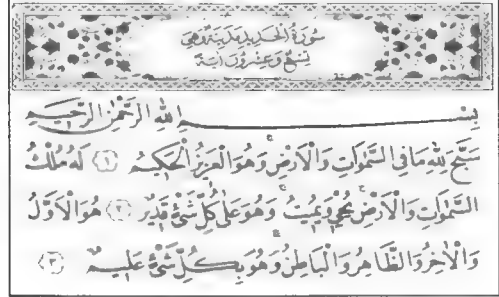 سُورَةُ الْحَدِيدِ مَدَنِيَّةٌ وَهِيَ
تِسْعٌ وَعِشْرُونَ اٰيَةً
بِسْمِ اللّٰهِ الرَّحْمٰنِ الرَّحِيمِ
سَبَّحَ لِلّٰهِ مَا فِى السَّمٰوَاتِ وَالْاَرْضِ وَهُوَ الْعَزِيزُ الْحَكِيمُ ﴿١﴾ لَهُ مُلْكُ
السَّمٰوَاتِ وَالْاَرْضِ يُحْيٖ وَيُمِيتُ وَهُوَ عَلٰى كُلِّ شَیْءٍ قَدِيرٌ ﴿٢﴾ هُوَ الْاَوَّلُ
وَالْاٰخِرُ وَالظَّاهِرُ وَالْبَاطِنُ وَهُوَ بِكُلِّ شَیْءٍ عَلِيمٌ ﴿٣﴾